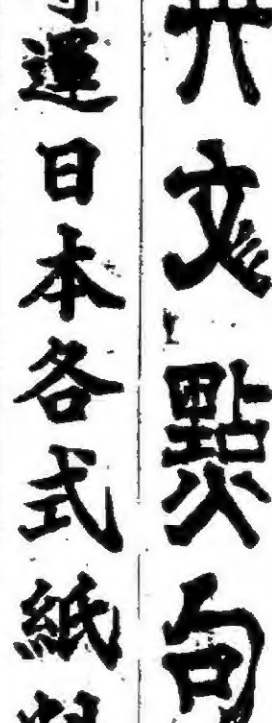 文點句
運日本各式紙